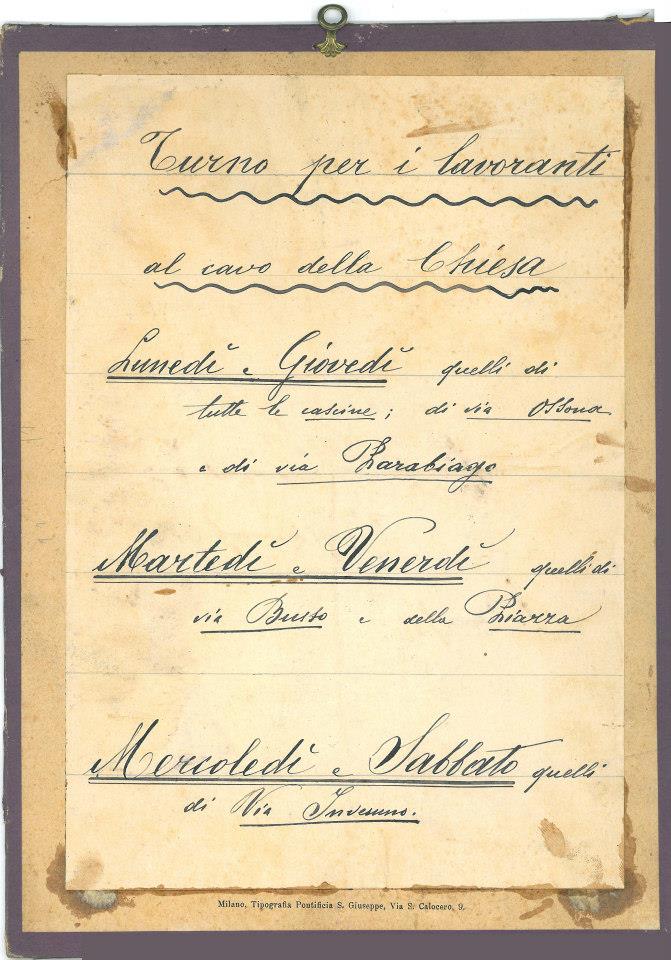 Turno per i lavoranti
al cavo della Chiesa
Lunedì e Giovedì quelli di
tutte le cascine; di via Ossona
e di via Parabiago
Martedì e Venerdì quelli di
via Busto e della Piazza
Mercoledì e Sabbato quelli
di Via Inveruno.
Milano, Tipografia Pontificia S. Giuseppe, Via S. Calocero, 9.